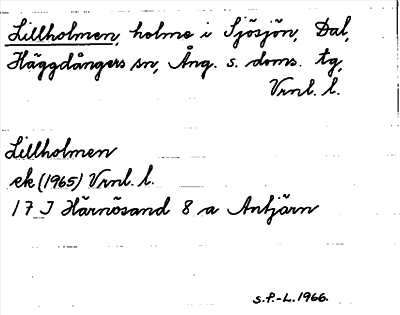 Lillholmen, holme i Sjösjön, Dal,
Häggdångers sn, Ång. s. doms. tg,
Vrnl. l.
Lillholmen
ek (1965) Vrnl. l.
17 J Härnösand 8 a Antjärn
S.P.-L. 1966.